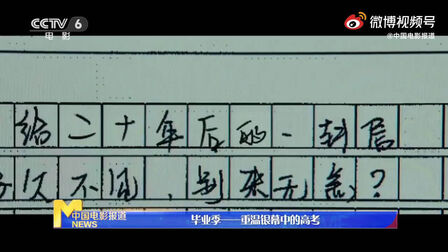 CCTV 6
电影
微博视频号
@中国电影报道
给二十年后的一封信
好久不见，别来无恙？
中国电影报道
NEWS
毕业季——重温银幕中的高考